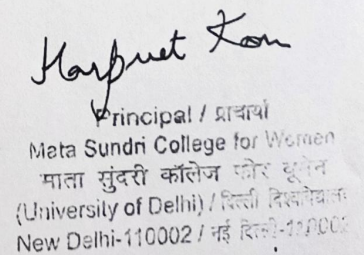 Harpreet Kaur
Principal / प्राचार्या
Mata Sundri College for Women
माता सुंदरी कॉलेज फोर वूमेन
(University of Delhi) / दिल्ली विश्वविद्यालय
New Delhi-110002 / नई दिल्ली-110002